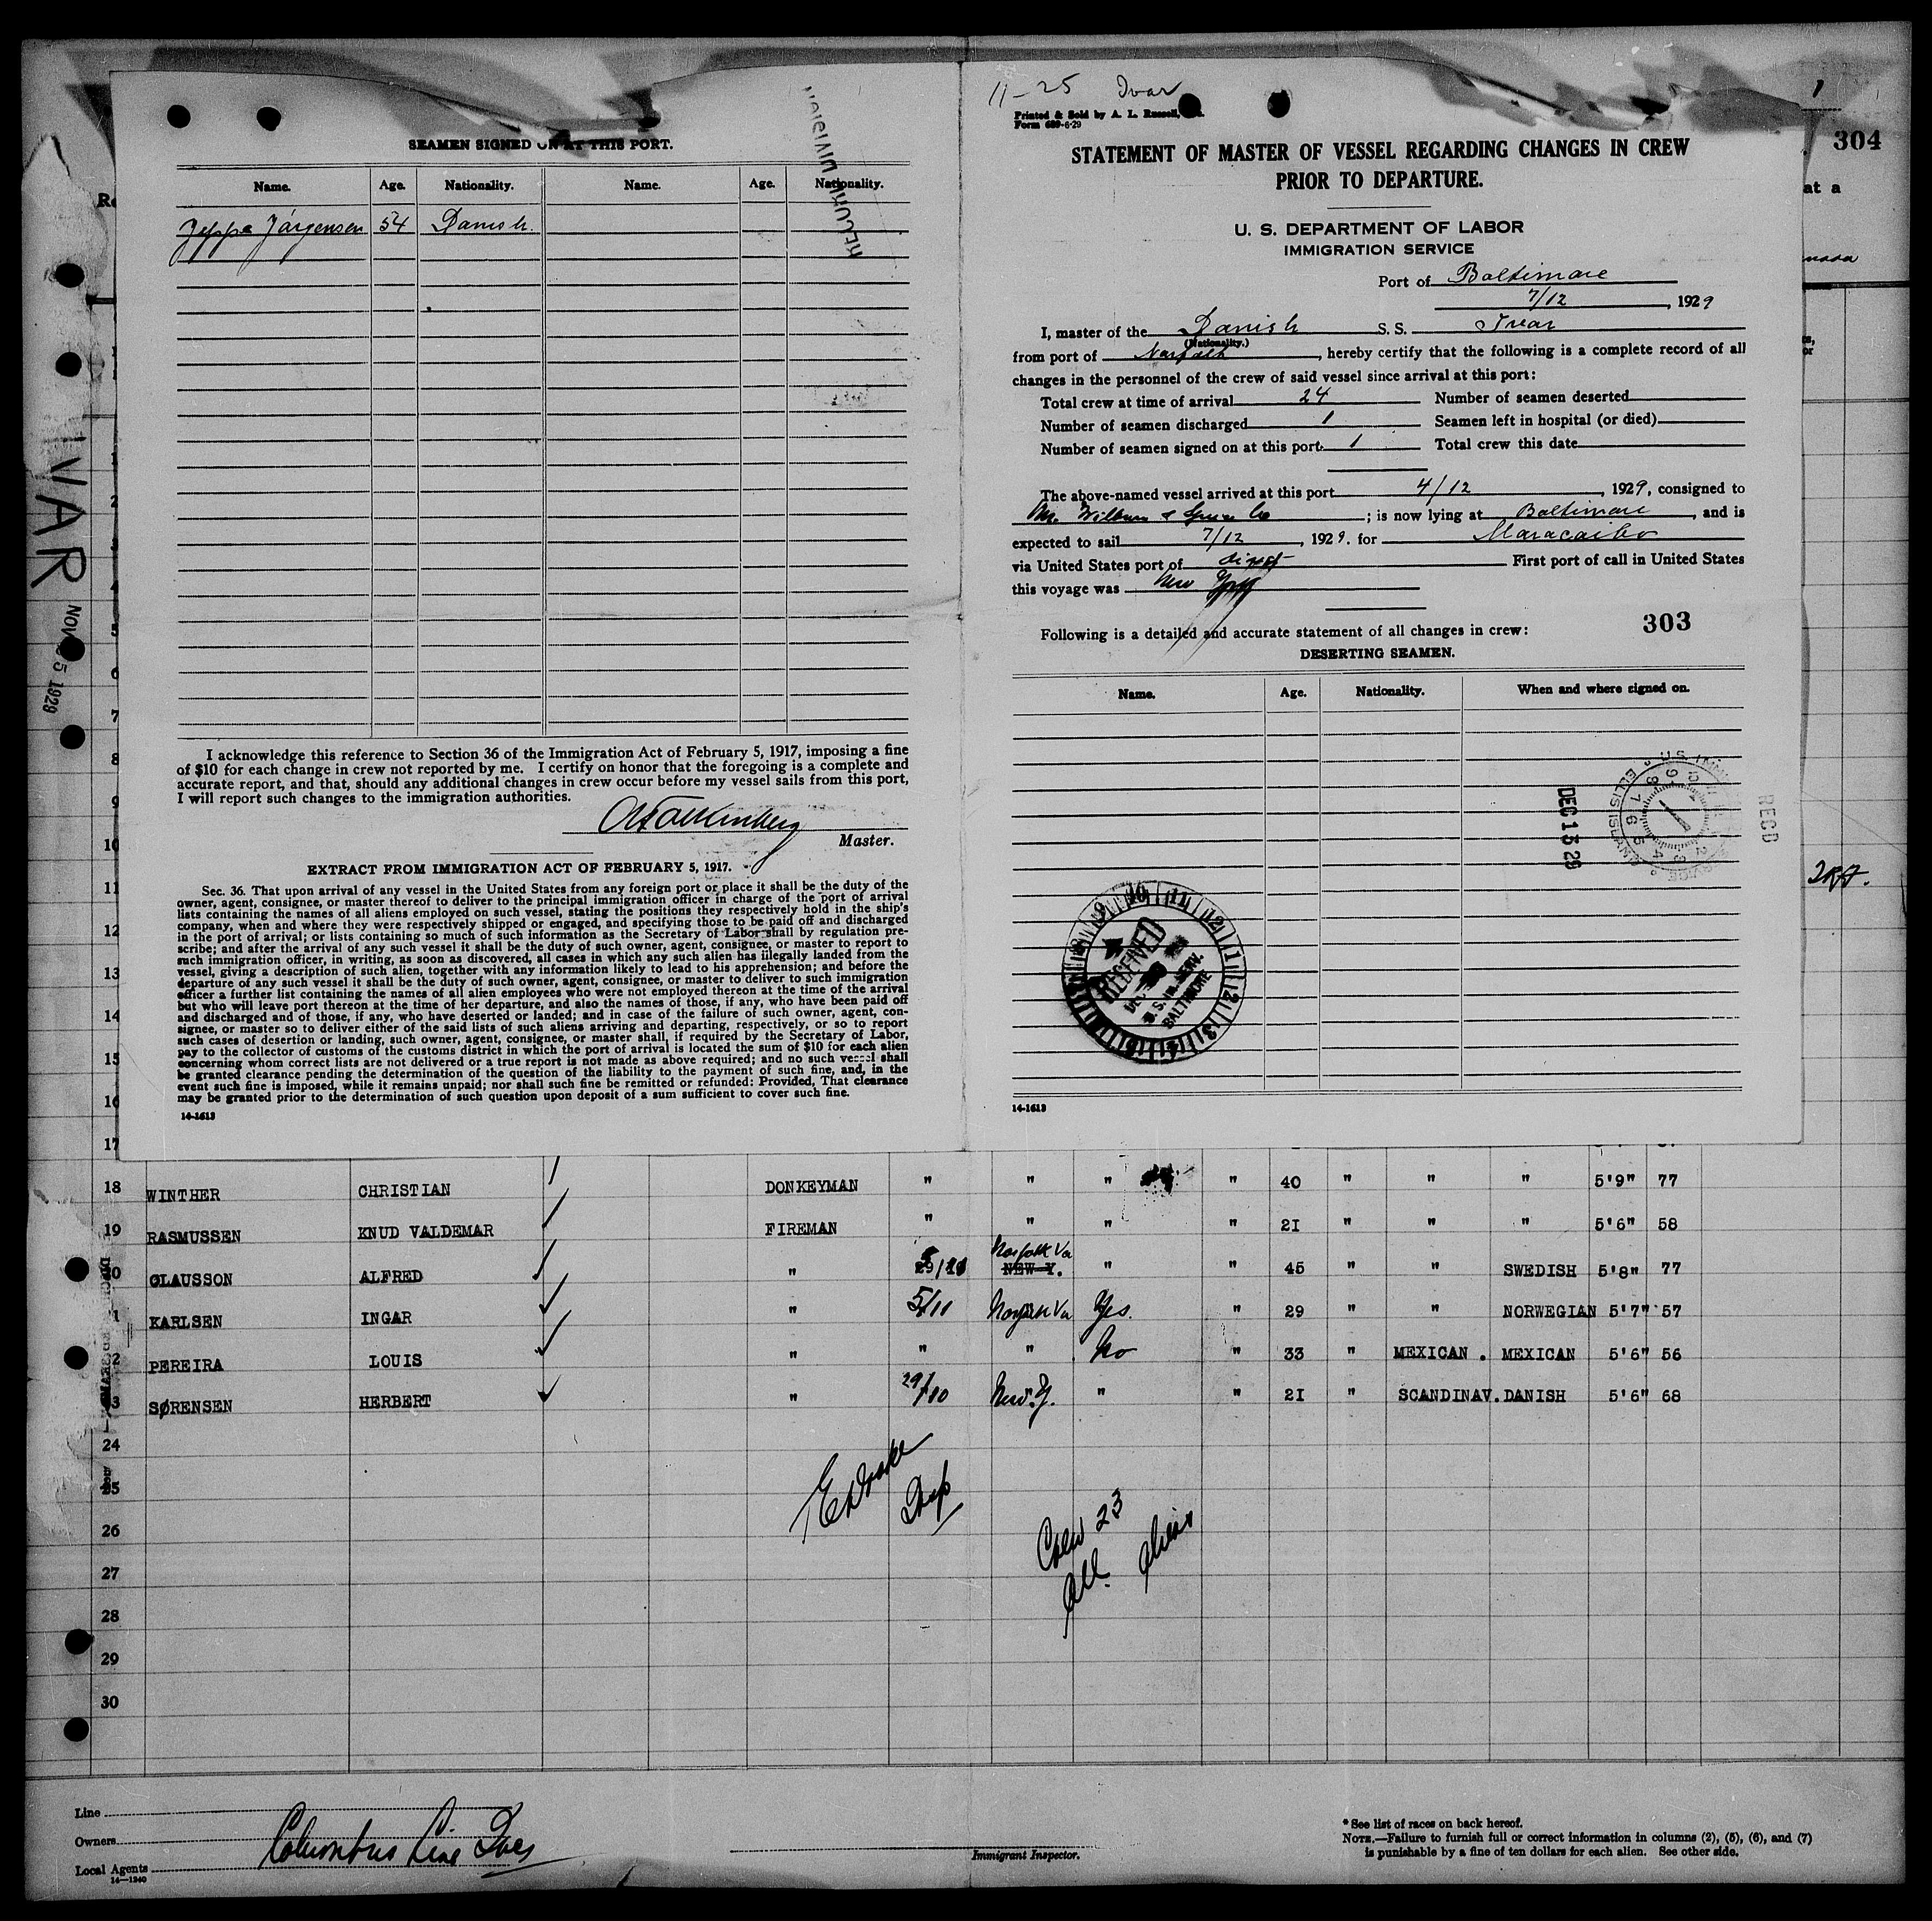 SEAMEN SIGNED ON AT THIS PORT.
Name. Age. Nationality. Name. Age. Nationality.
Jeppe Jörgensen 54 Danish.
RECORD DIVISION
I acknowledge this reference to Section 36 of the Immigration Act of February 5, 1917, imposing a fine
of $10 for each change in crew not reported by me. I certify on honor that the foregoing is a complete and
accurate report, and that, should any additional changes in crew occur before my vessel sails from this port,
I will report such changes to the immigration authorities.
Master.
EXTRACT FROM IMMIGRATION ACT OF FEBRUARY 5, 1917.
Sec. 36. That upon arrival of any vessel in the United States from any foreign port or place it shall be the duty of the
owner, agent, consignee, or master thereof to deliver to the principal immigration officer in charge of the port of arrival
lists containing the names of all aliens employed on such vessel, stating the positions they respectively hold in the ship's
company, when and where they were respectively shipped or engaged, and specifying those to be paid off and discharged
in the port of arrival; or lists containing so much of such information as the Secretary of Labor shall by regulation pre-
scribe; and after the arrival of any such vessel it shall be the duty of such owner, agent, consignee, or master to report to
such immigration officer, in writing, as soon as discovered, all cases in which any such alien has illegally landed from the
vessel, giving a description of such alien, together with any information likely to lead to his apprehension; and before the
departure of any such vessel it shall be the duty of such owner, agent, consignee, or master to deliver to such immigration
officer a further list containing the names of all alien employees who were not employed thereon at the time of the arrival
but who will leave port thereon at the time of her departure, and also the names of those, if any, who have been paid off
and discharged and of those, if any, who have deserted or landed; and in case of the failure of such owner, agent, con-
signee, or master so to deliver either of the said lists of such aliens arriving and departing, respectively, or so to report
such cases of desertion or landing, such owner, agent, consignee, or master shall, if required by the Secretary of Labor,
pay to the collector of customs of the customs district in which the port of arrival is located the sum of $10 for each alien
concerning whom correct lists are not delivered or a true report is not made as above required; and no such vessel shall
be granted clearance pending the determination of the question of the liability to the payment of such fine, and, in the
event such fine is imposed, while it remains unpaid; nor shall such fine be remitted or refunded: Provided, That clearance
may be granted prior to the determination of such question upon deposit of a sum sufficient to cover such fine.
14-1613
11-25 Ivar
Printed & Sold by A. L. Russell,
Form 689-6-29
STATEMENT OF MASTER OF VESSEL REGARDING CHANGES IN CREW
PRIOR TO DEPARTURE.
U. S. DEPARTMENT OF LABOR
IMMIGRATION SERVICE
Port of Baltimore
7/12, 1929
I, master of the Danish S. S. Ivar
(Nationality.)
from port of Norfolk, hereby certify that the following is a complete record of all
changes in the personnel of the crew of said vessel since arrival at this port:
Total crew at time of arrival 24 Number of seamen deserted
Number of seamen discharged 1 Seamen left in hospital (or died)
Number of seamen signed on at this port 1 Total crew this date
The above-named vessel arrived at this port 4/12, 1929, consigned to
; is now lying at Baltimore, and is
expected to sail 7/12, 1929. for Maracaibo
via United States port of direct First port of call in United States
this voyage was New York
303
Following is a detailed and accurate statement of all changes in crew:
DESERTING SEAMEN.
Name. Age. Nationality. When and where signed on.
DEC 13 29
RECD
RECEIVED
DEC
U.S. IM. SERV.
BALTIMORE
14-1613
304
at a
IVAR
NOV 5 1929
2
3
4
5
6
7
8
9
10
11
12
13
14
15
16
17
18 WINTHER CHRISTIAN DONKEYMAN " " " " 40 " " " 5'9" 77
19 RASMUSSEN KNUD VALDEMAR FIREMAN " " " " 21 " " " 5'6" 58
20 CLAUSSON ALFRED " Norfolk Va NEW Y. " " 45 " " SWEDISH 5'8" 77
1 KARLSEN INGAR " 5/11 Norfolk Va Yes. " 29 " " NORWEGIAN 5'7" 57
2 PEREIRA LOUIS " " " No " 33 " MEXICAN . MEXICAN 5'6" 56
3 SØRENSEN HERBERT " 29/10 New.Y. " " 21 " SCANDINAV. DANISH 5'6" 68
24
25
26
27
28
29
30
Crew 23
All Aliens
Line
Owners
Local Agents
Columbus Line
14-1240
Immigrant Inspector.
* See list of races on back hereof.
NOTE.—Failure to furnish full or correct information in columns (2), (5), (6), and (7)
is punishable by a fine of ten dollars for each alien. See other side.